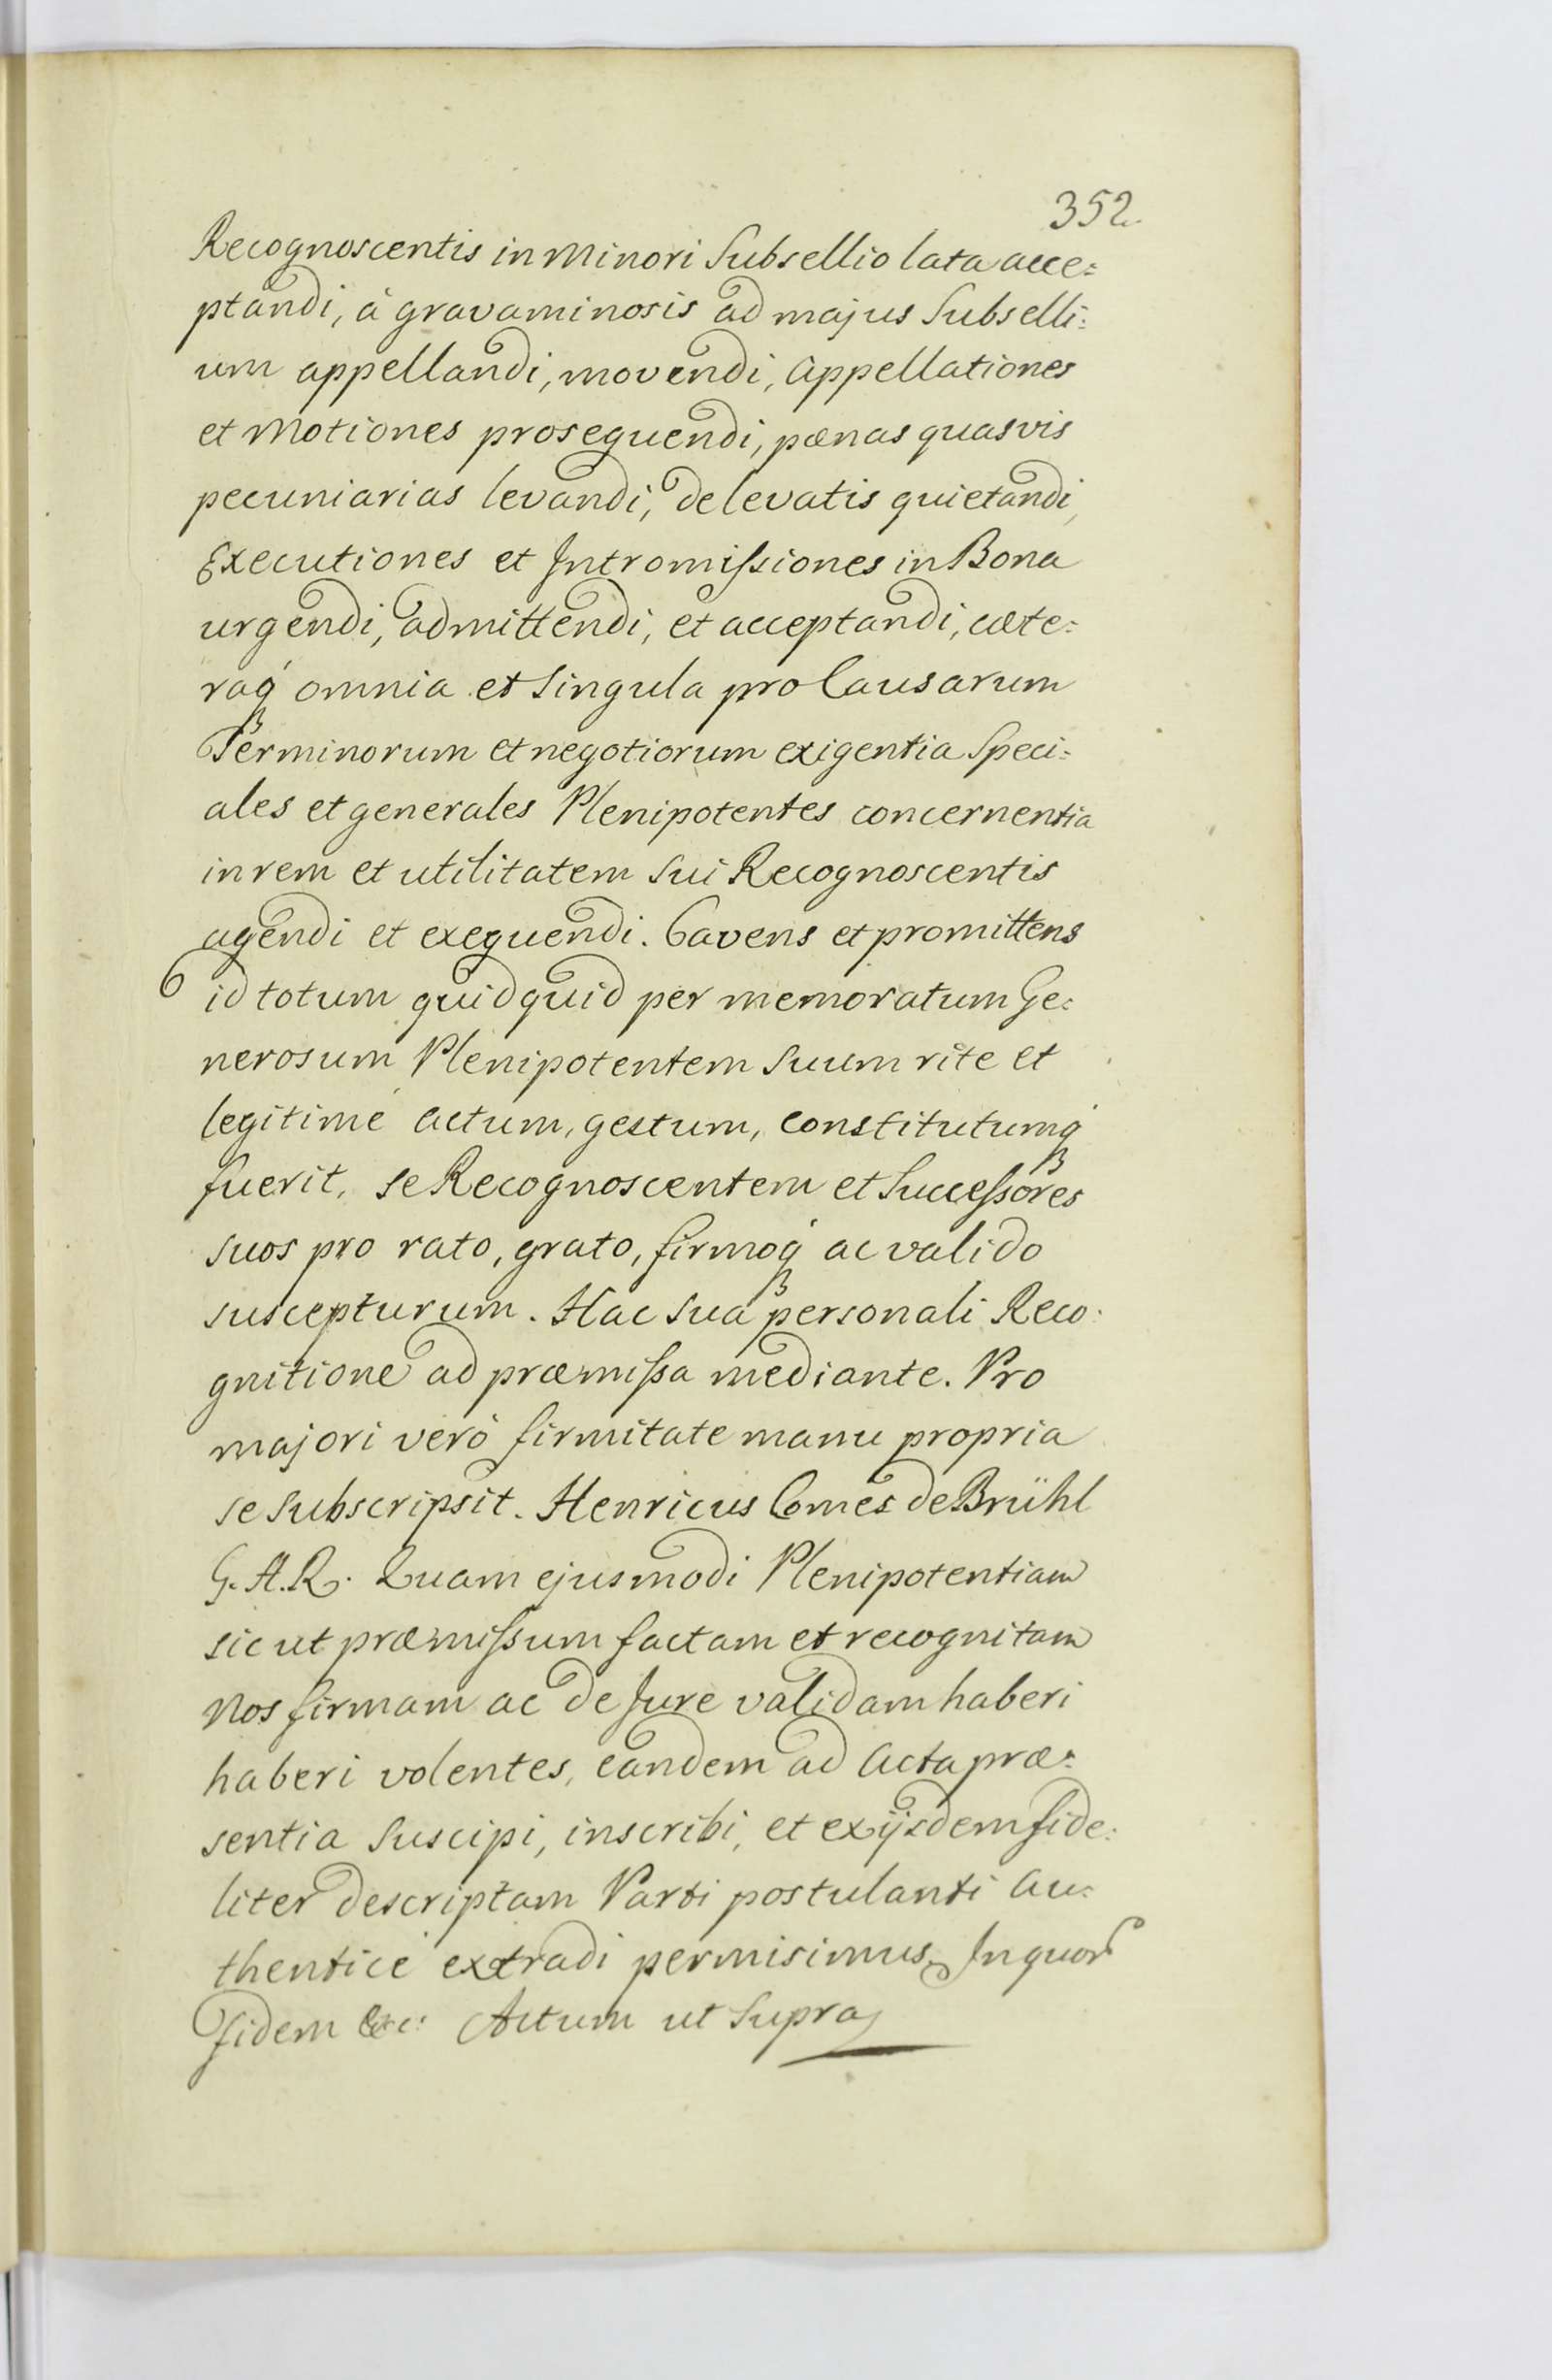 352.
Recognoscentis in Minori Subsellio lata acce:
ptandi, à gravaminosis ad majus Subselli:
um appellandi, movendi, Appellationes
et Motiones prosequendi, pænas quasvis
pecuniarias levandi, de levatis quietandi,
Executiones et Intromiſsiones in Bona
urgendi, admittendi, et acceptandi, cæte:
raq́ omnia et singula pro Causarum
Terminorum et negotiorum exigentia Speci:
ales et generales Plenipotentes concernentia
in rem et utilitatem Sui Recognoscentis
agendi et exequendi. Cavens et promittens
id totum quidquid per memoratum Ge:
nerosum Plenipotentem Suum rite et
legitimé actum, gestum, constitutumq́
fuerit, se Recognoscentem et Succeſsores
suos pro rato, grato, firmoq́ ac valido
suscepturum. Hac sua personali Reco:
gnitione ad præmiſsa mediante. Pro
majori veró firmitate manu propria
se subscripsit. Henricus Comes de Brühl
G. A. R. Quam ejusmodi Plenipotentiam
sic ut præmiſsum factam et recognitam
Nos firmam ac de Jure validam haberi
haberi volentes, eandem ad Acta præ:
sentia Suscipi, inscribi, et ex ijsdem fide:
liter descriptam Parti postulanti Au:
thenticé extradi permisimus. In quor
fidem &c: Actum ut Supra